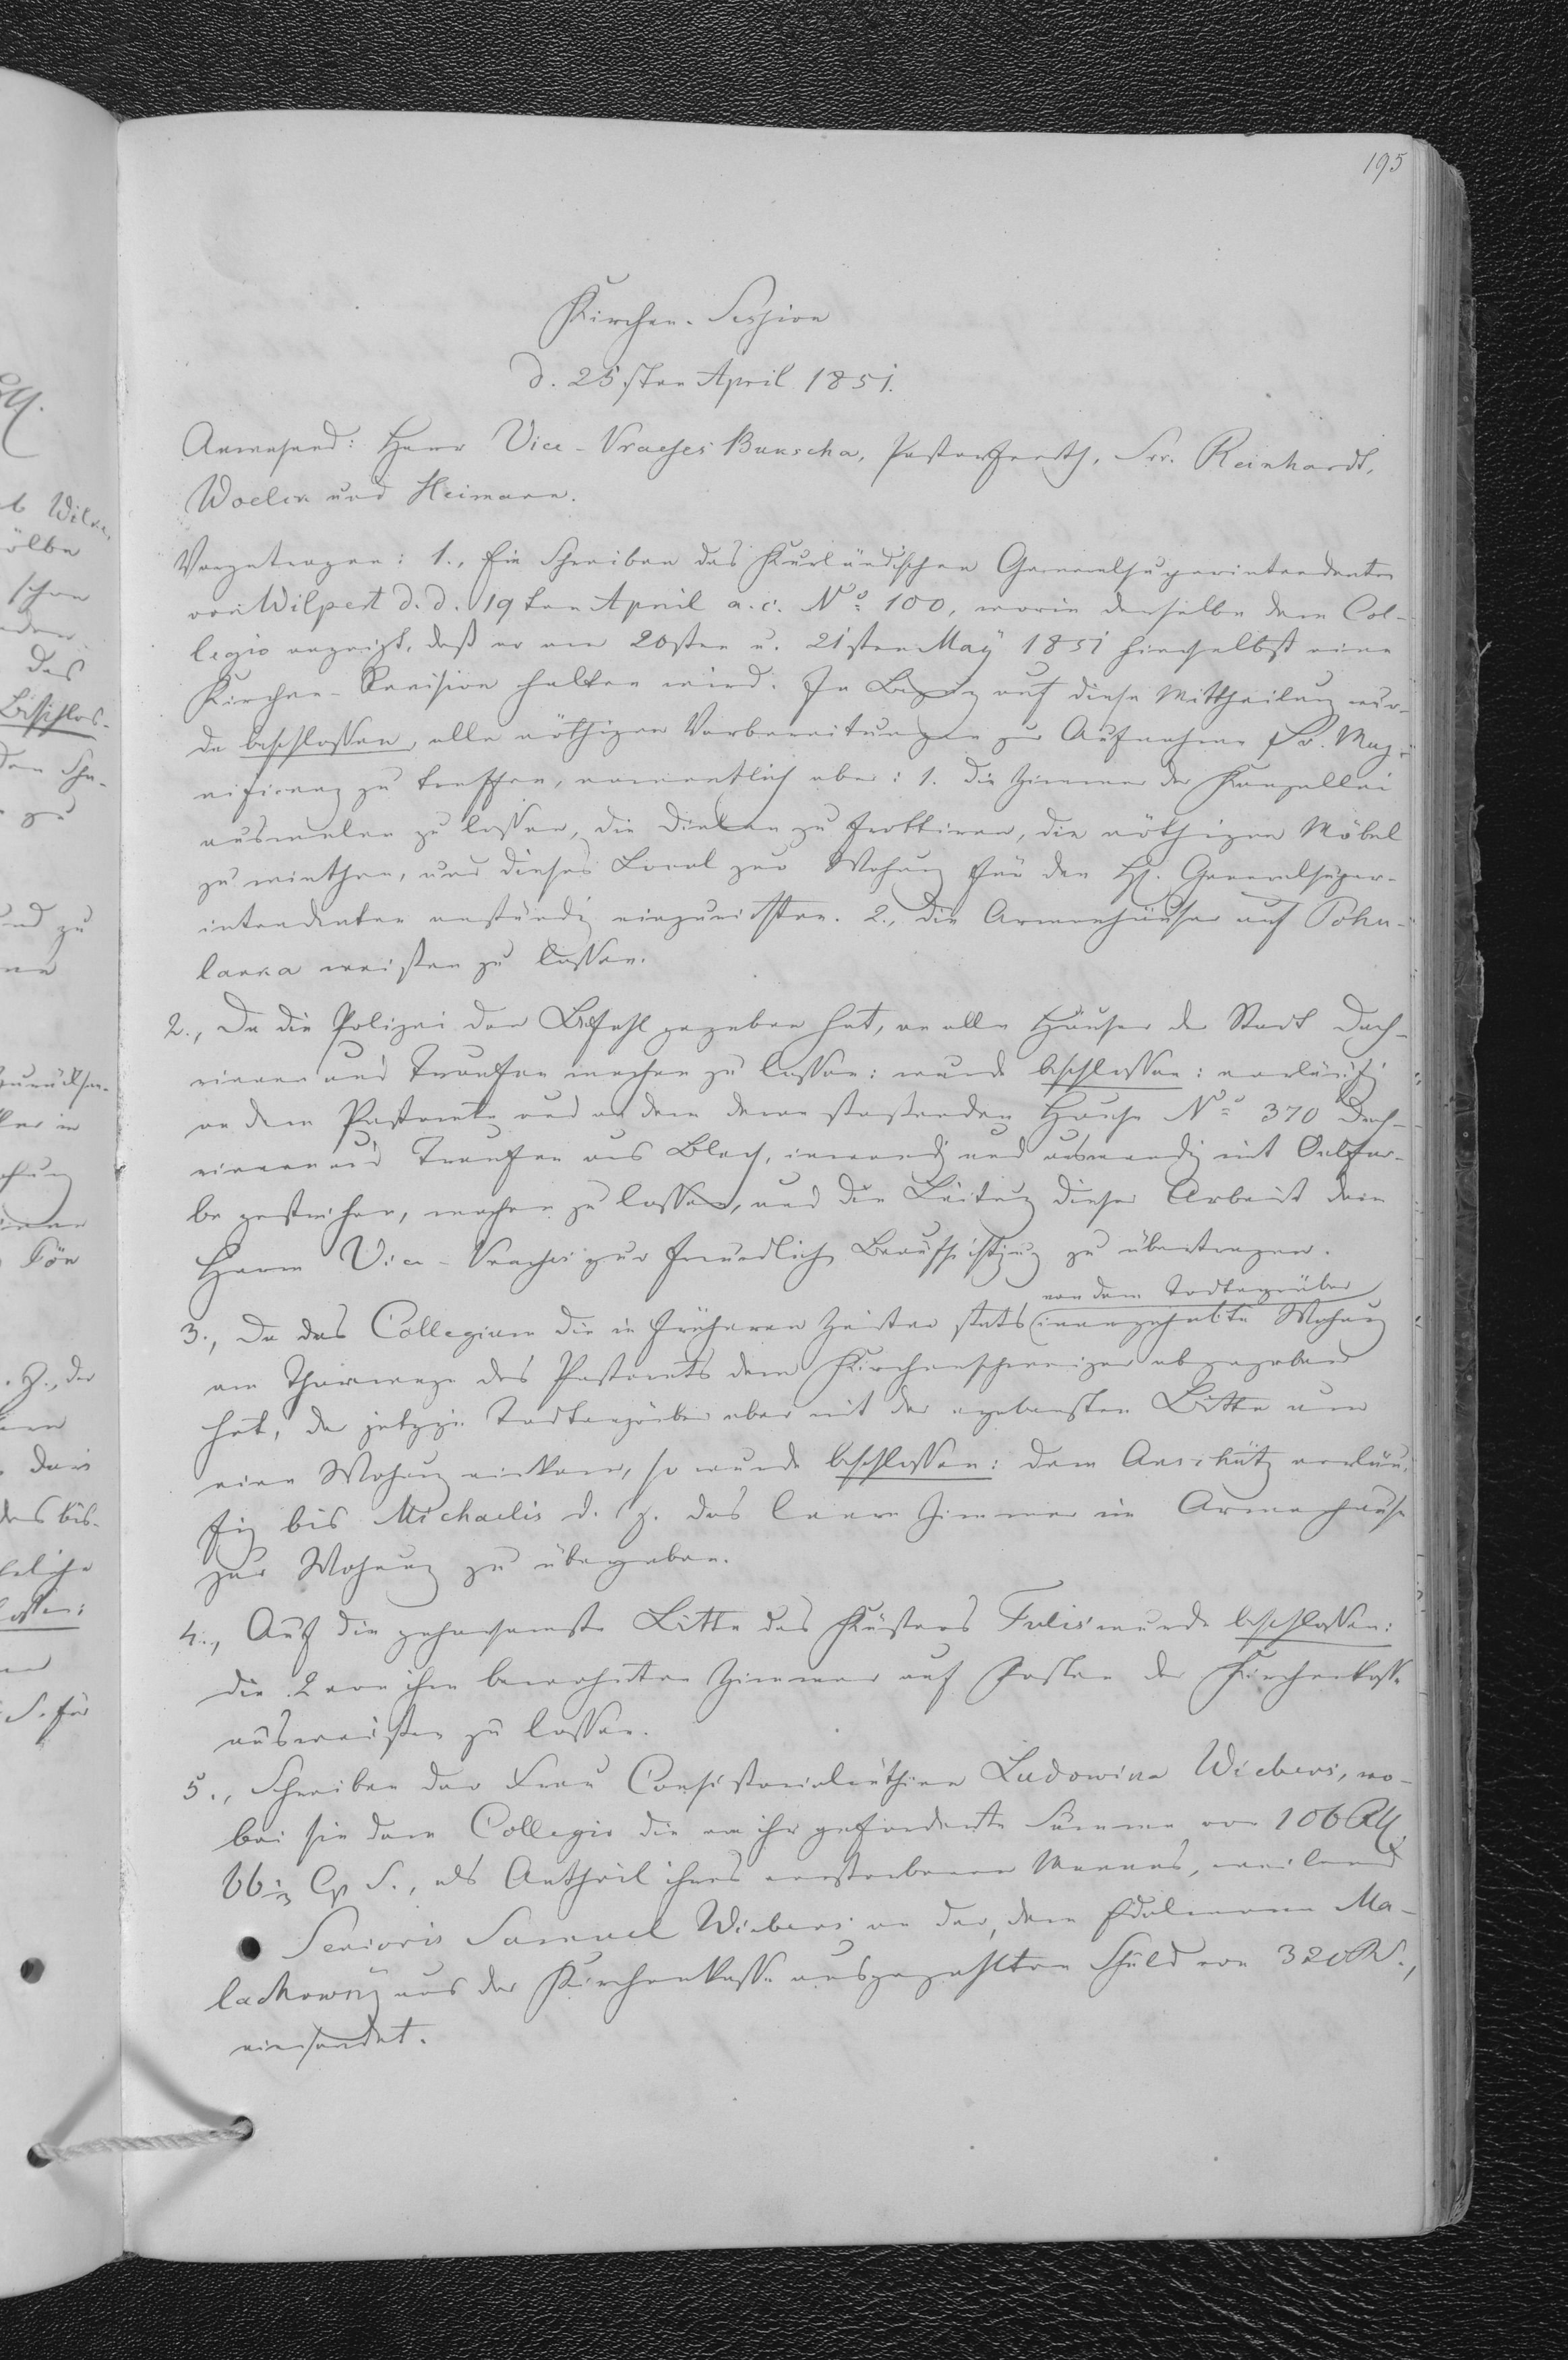 195
Kirchen-Session
d. 25sten April 1851.
Anwesend: Herr Vice-Praeses Bunscha, Pastor, Srr. Reinhardt,
Woelck und Heimann.
Vorgetragen: 1., Ein Schreiben des Kurländischen Generalsuperintendenten
von Wilpert d. d. 19ten April a. c. No 100, worin derselbe dem Col-
legio anzeigt, daß er am 20sten u. 21sten May 1851 hierselbst eine
Kirchen-Revision halten wird. In Bezug auf diese Mittheilung wur-
de beschlossen, alle nöthigen Vorbereitungen zur Aufnahme Sr. Mag-
nificenz zu treffen, namentlich aber: 1. die Zimmer der Kanzellei
ausmalen zu lassen, die Dielen zu frottiren, die nöthigen Möbel
zu miethen, und dieses Local zur Wohnung für den H. Generalsuper-
intendenten anständig einzurichten. 2., die Armenhäuser auf Pohu-
lanka weißen zu lassen.
2., Da die Polizei den Befehl gegeben hat, an alle Häuser der Stadt Dach-
rinnen und Traufen machen zu lassen: wurde beschlossen: vorläufig
an dem Pastorate und an dem daran stoßenden Hause No 370 Dach-
rinnen und Traufen aus Blech, inwendig und auswendig mit Oelfar-
be gestrichen, machen zu lassen, und die Leitung dieser Arbeit dem
Herrn Vice-Praeses zur freundlichen Beaufsichtigung zu übertragen.
von dem Todtengräber
3., Da das Collegium die in früheren Zeiten stets innegehabte Wohnung
am Thorwege des Pastorats dem Kirchenschweizer abgegeben
hat, der jetzige Todtengräber aber mit der ergebensten Bitte um
eine Wohnung einkam, so wurde beschlossen: dem Anschütz vorläu-
fig bis Michaelis d. J. das leere Zimmer im Armenhause
zur Wohnung zu übergeben.
4., Auf die gehorsamste Bitte des Küsters Fulis wurde beschlossen:
die 2 von ihm bewohnten Zimmer auf Kosten der Kirchenkasse
ausweißen zu lassen.
5., Schreiben der Frau Consistorialräthin Ludowika Wiebers, wo-
bei sie dem Collegio die von ihr geforderte Summe von 106 Rll.
66 2/3 Cp S., als Antheil ihres verstorbenen Mannes, weiland
Senioris Samuel Wiebers an der, dem Edelmann Ma-
lachowsky aus der Kirchenkasse ausgezahlten Schuld von 320 R S.,
einsendet.